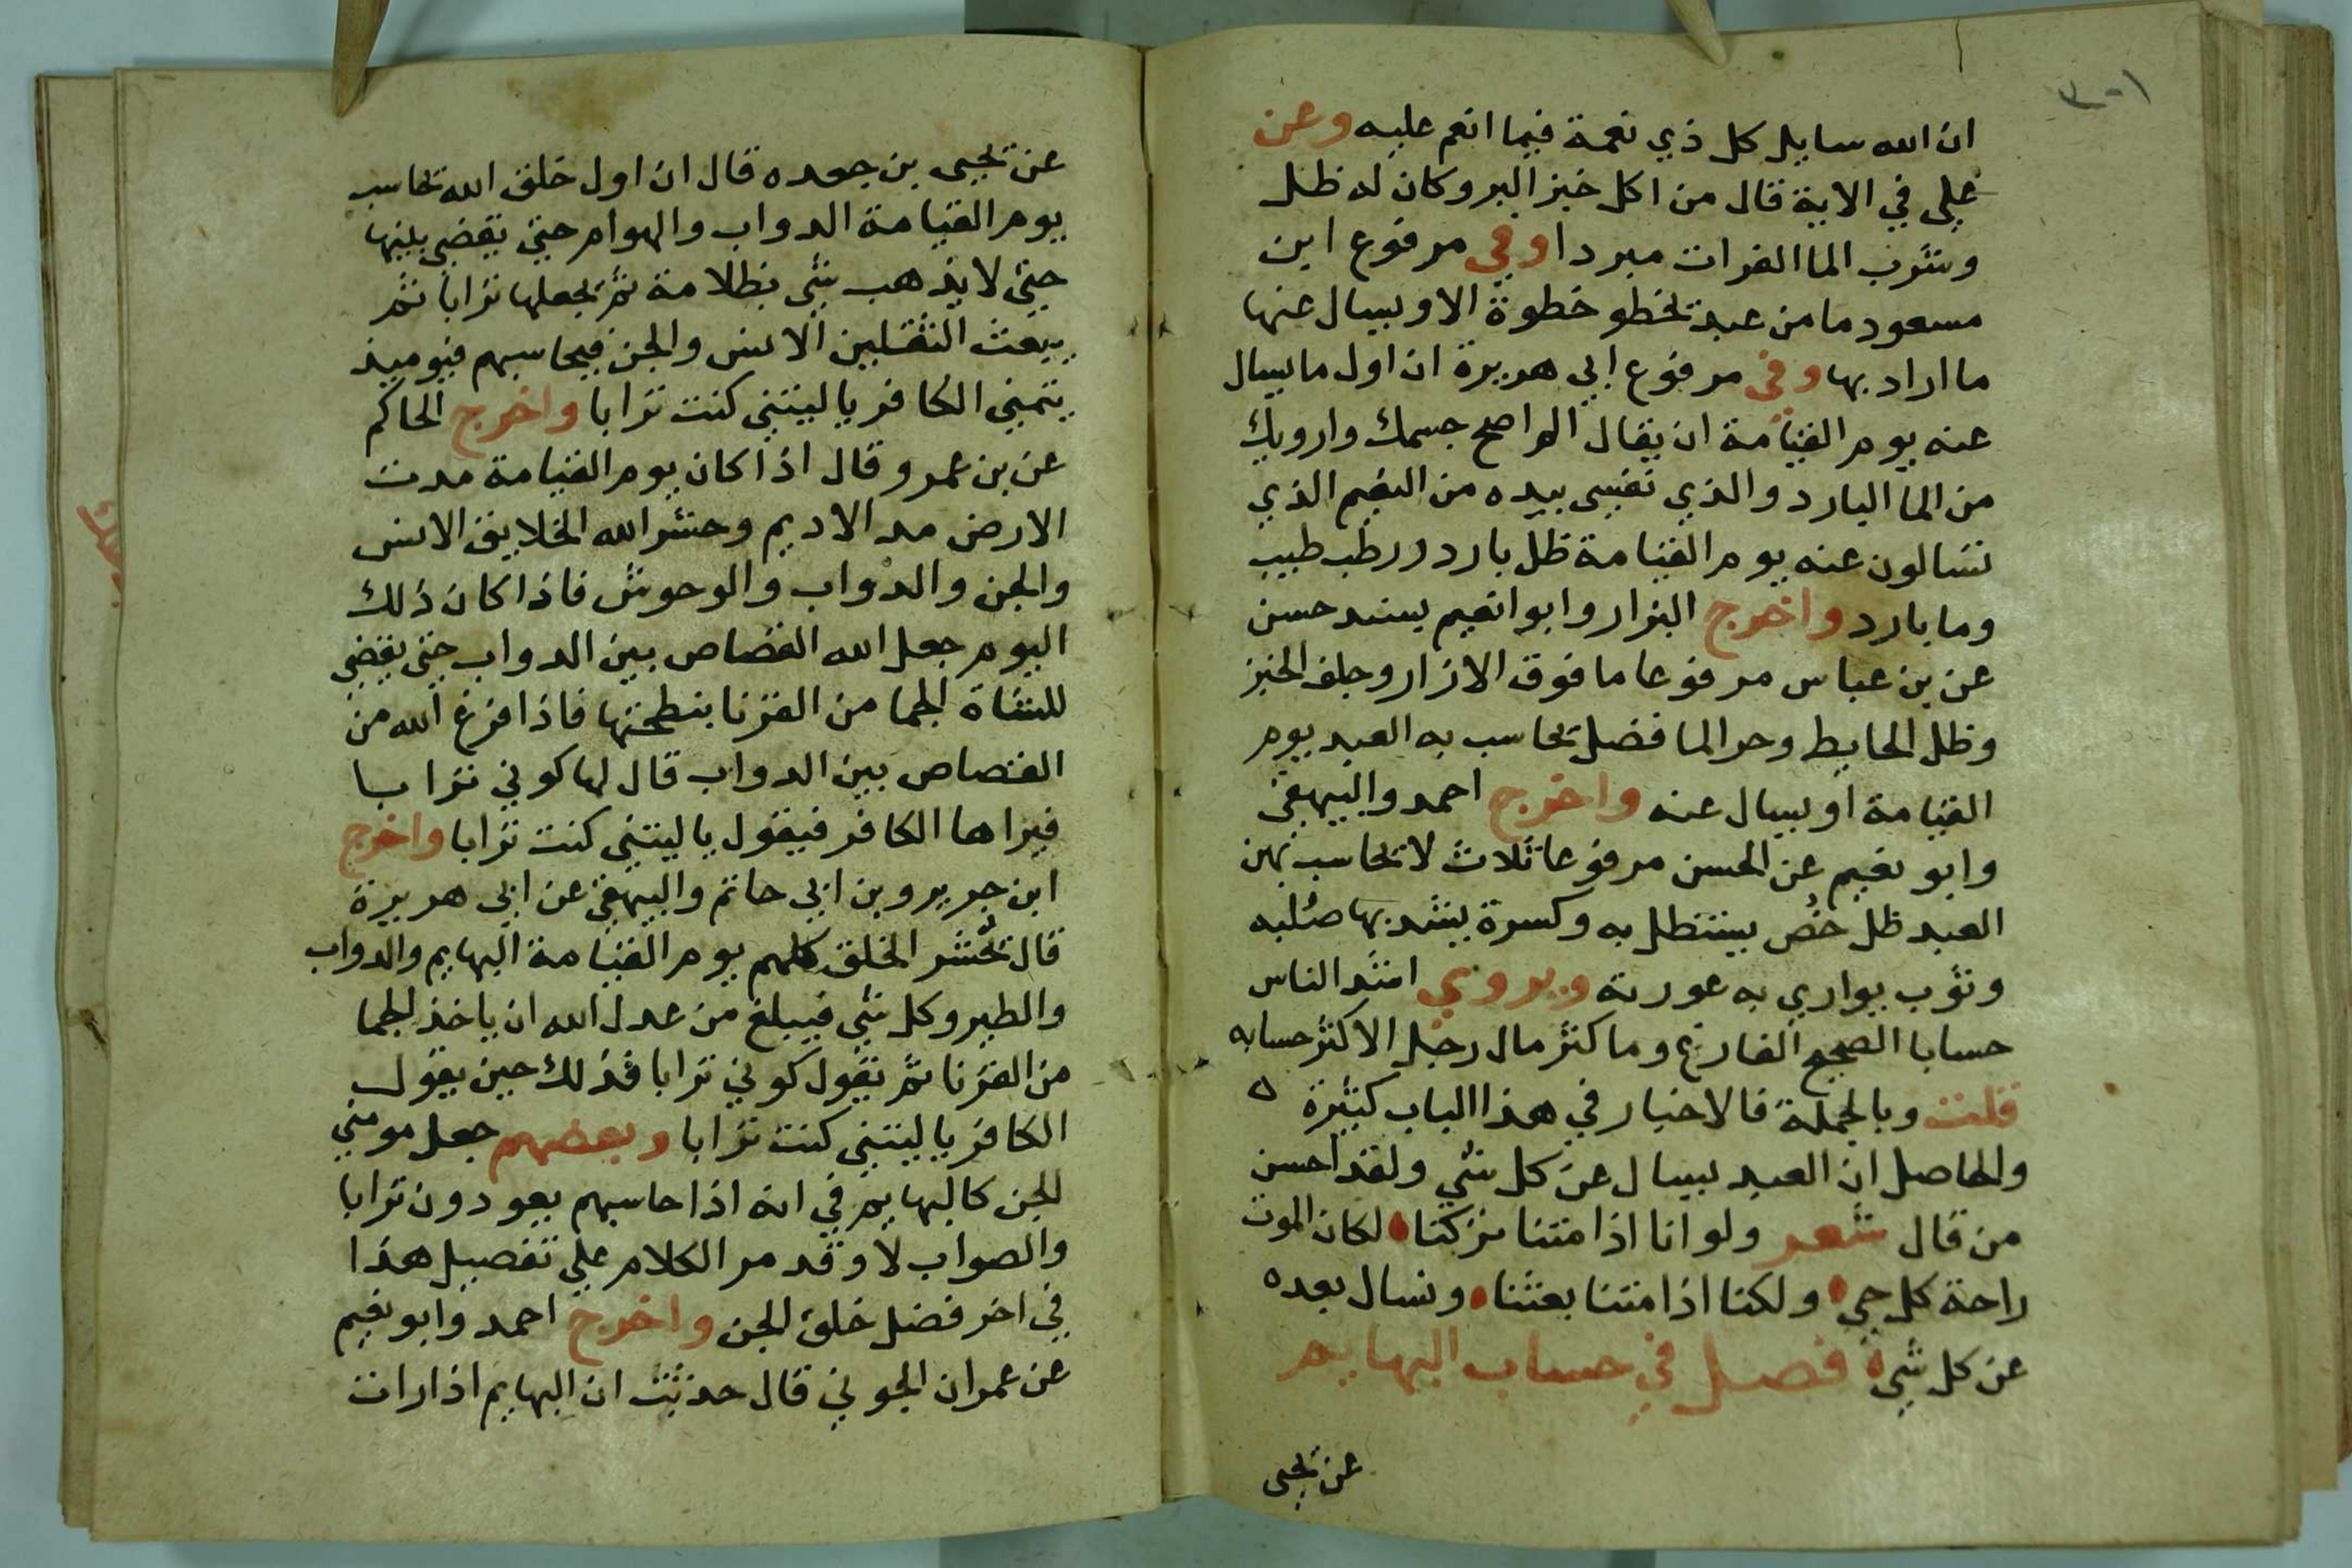 ان الله سايل كل ذي نعمة فيما انعم عليه وعن
علي في الاية قال من اكل خبز البر وكان له ظل
وشرب الما الفرات مبردا وفي مرفوع ابن
مسعود ما من عبد يخطو خطوة الا ويسال عنها
ما اراد بها وفي مرفوع ابي هريرة ان اول ما يسال
عنه يوم القيامة ان يقال الم اصح جسمك وارويك
من الما البارد والذي نفسي بيده من النعيم الذي
تسالون عنه يوم القيامة ظل بارد ورطب طيب
وما بارد واخرج البزار وابو انعيم بسند حسن
عن بن عباس مرفوعا ما فوق الازار وجلف الخبز
وظل الحايط وحر الما فضل يحاسب به العبد يوم
القيامة او يسال عنه واخرج احمد والبيهقي
وابو نعيم عن الحسن مرفوعا ثلاث لا يحاسب بهن
العبد ظل خُص يستظل به وكسرة يشد بها صلبه
وثوب يواري به عورته ويروي اشد الناس
حسابا الصحيح الفارغ وما كثر مال رجل الا كثر حسابه
قلت وبالجملة فالاخبار في هذا الباب كثيرة ٥
والحاصل ان العبد يسال عن كل شي ولقد احسن
من قال شعر ولو انا اذا متنا تركنا لكان الموت
راحة كل حي ولكنا اذا متنا بعثنا ونسال بعده
عن كل شي فصل في حساب البهايم
عن يحيى
عن يحيى بن جعده قال ان اول خلق الله يحاسب
يوم القيامة الدواب والهوام حتى يقضي بينها
حتى لا يذهب شي بظلامة ثم يجعلها ترابا ثم
يبعث الثقلين الانس والجن فيحاسبهم فيوميذ
يتمني الكافر يا ليتني كنت ترابا واخرج الحاكم
عن بن عمرو قال اذا كان يوم القيامة مدت
الارض مد الاديم وحشر الله الخلايق الانس
والجن والدواب والوحوش فاذا كان ذلك
اليوم جعل الله القصاص بين الدواب حتى يقضي
للشاة الجما من القرنا بنطحتها فاذا فرغ الله من
القصاص بين الدواب قال لها كوني ترابا
فيراها الكافر فيقول يا ليتني كنت ترابا واخرج
ابن جرير وبن ابي حاتم والبيهقي عن ابي هريرة
قال يُحشر الخلق كلهم يوم القيامة البهايم والدواب
والطير وكل شي فيبلغ من عدل الله ان ياخذ للجما
من القرنا ثم يقول كوني ترابا فذلك حين يقول
الكافر يا ليتني كنت ترابا وبعضهم جعل مومني
الجن كالبهايم في انه اذا حاسبهم يعودون ترابا
والصواب لا وقد مر الكلام علي تفصيل هذا
في اخر فضل خلق الجن واخرج احمد وابو نعيم
عن عمران الجوني قال حدثت ان البهايم اذا رات